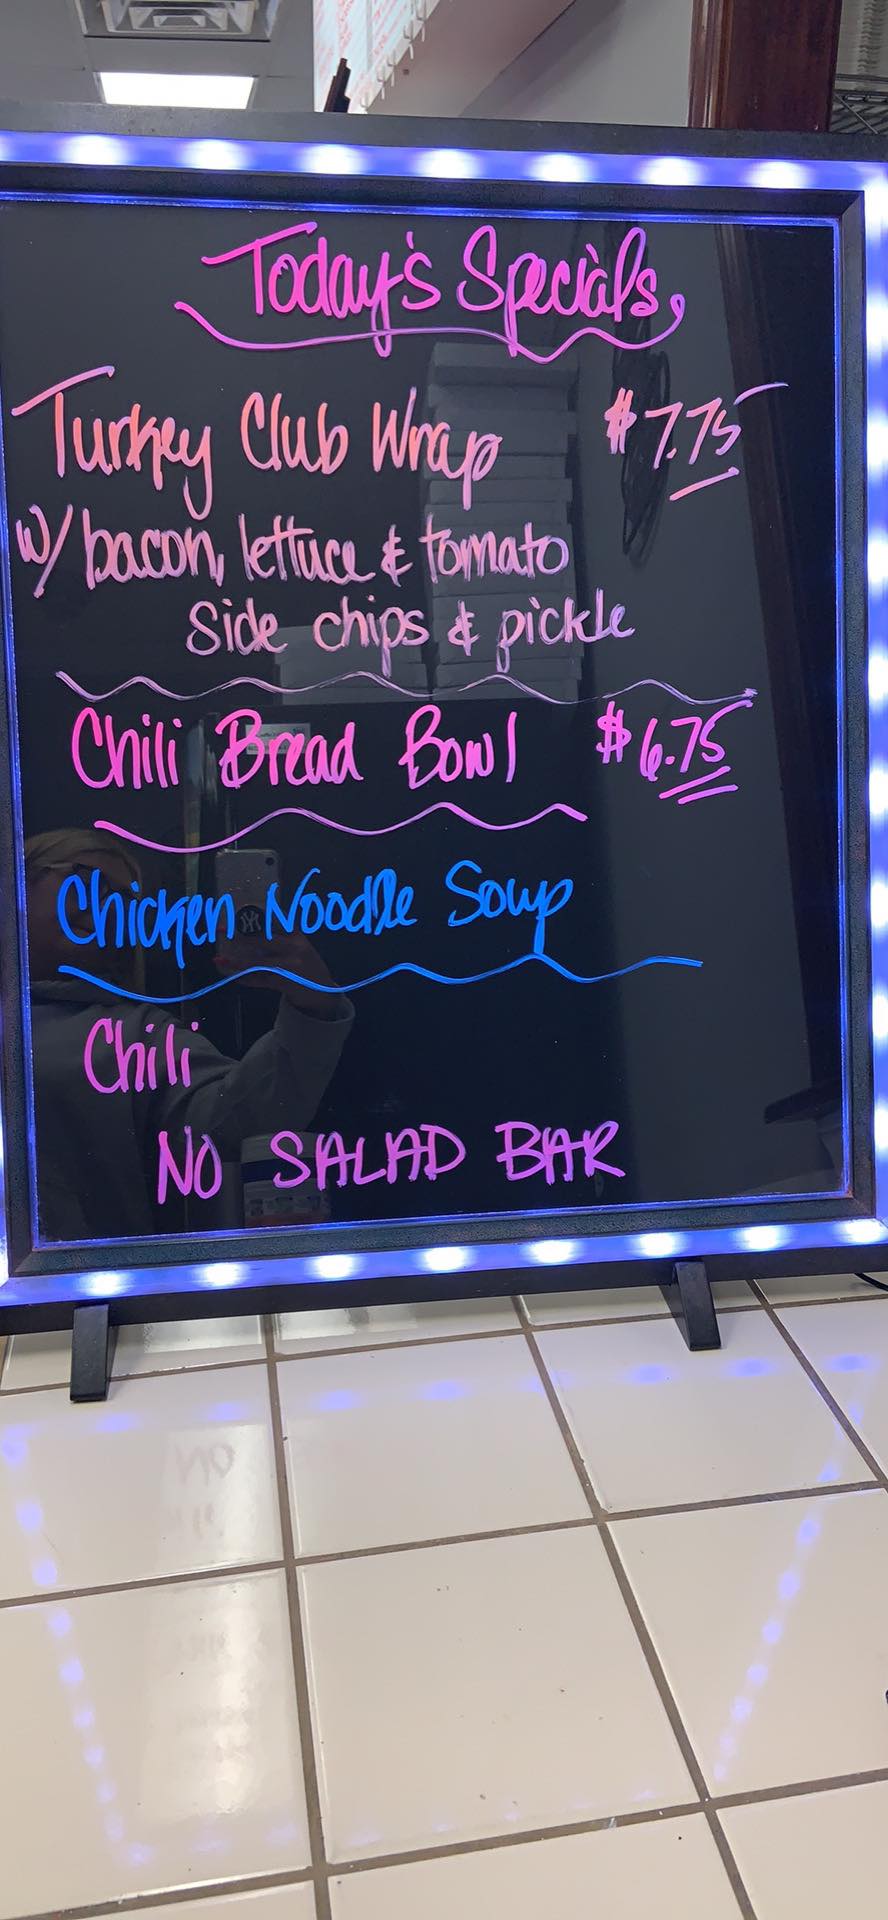 Today's Specials
Turkey Club Wrap $7.75
w/ bacon, lettuce & tomato
Side chips & pickle
Chili Bread Bowl $6.75
Chicken Noodle Soup
Chili
NO SALAD BAR